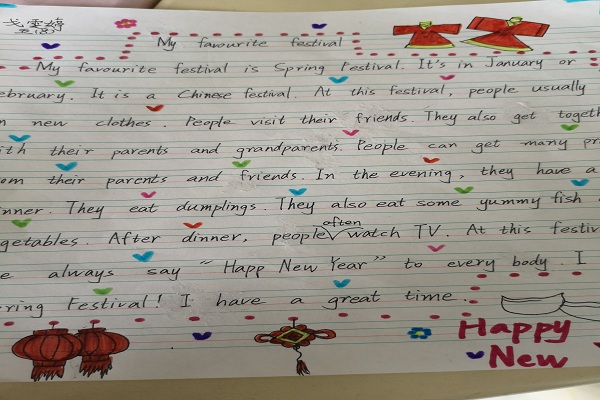 戈雪婷
五(8)
My favourite festival
My favourite festival is Spring Festival. It's in January or
ebruary. It is a Chinese festival. At this festival, people usually
n new clothes. People visit their friends. They also get togeth
ith their parents and grandparents. People can get many pr
om their parents and friends. In the evening, they have a
inner. They eat dumplings. They also eat some yummy fish a
getables. After dinner, people often watch TV. At this festiv
e always say "Happ New Year" to every body. I
pring Festival! I have a great time.
Happy
New